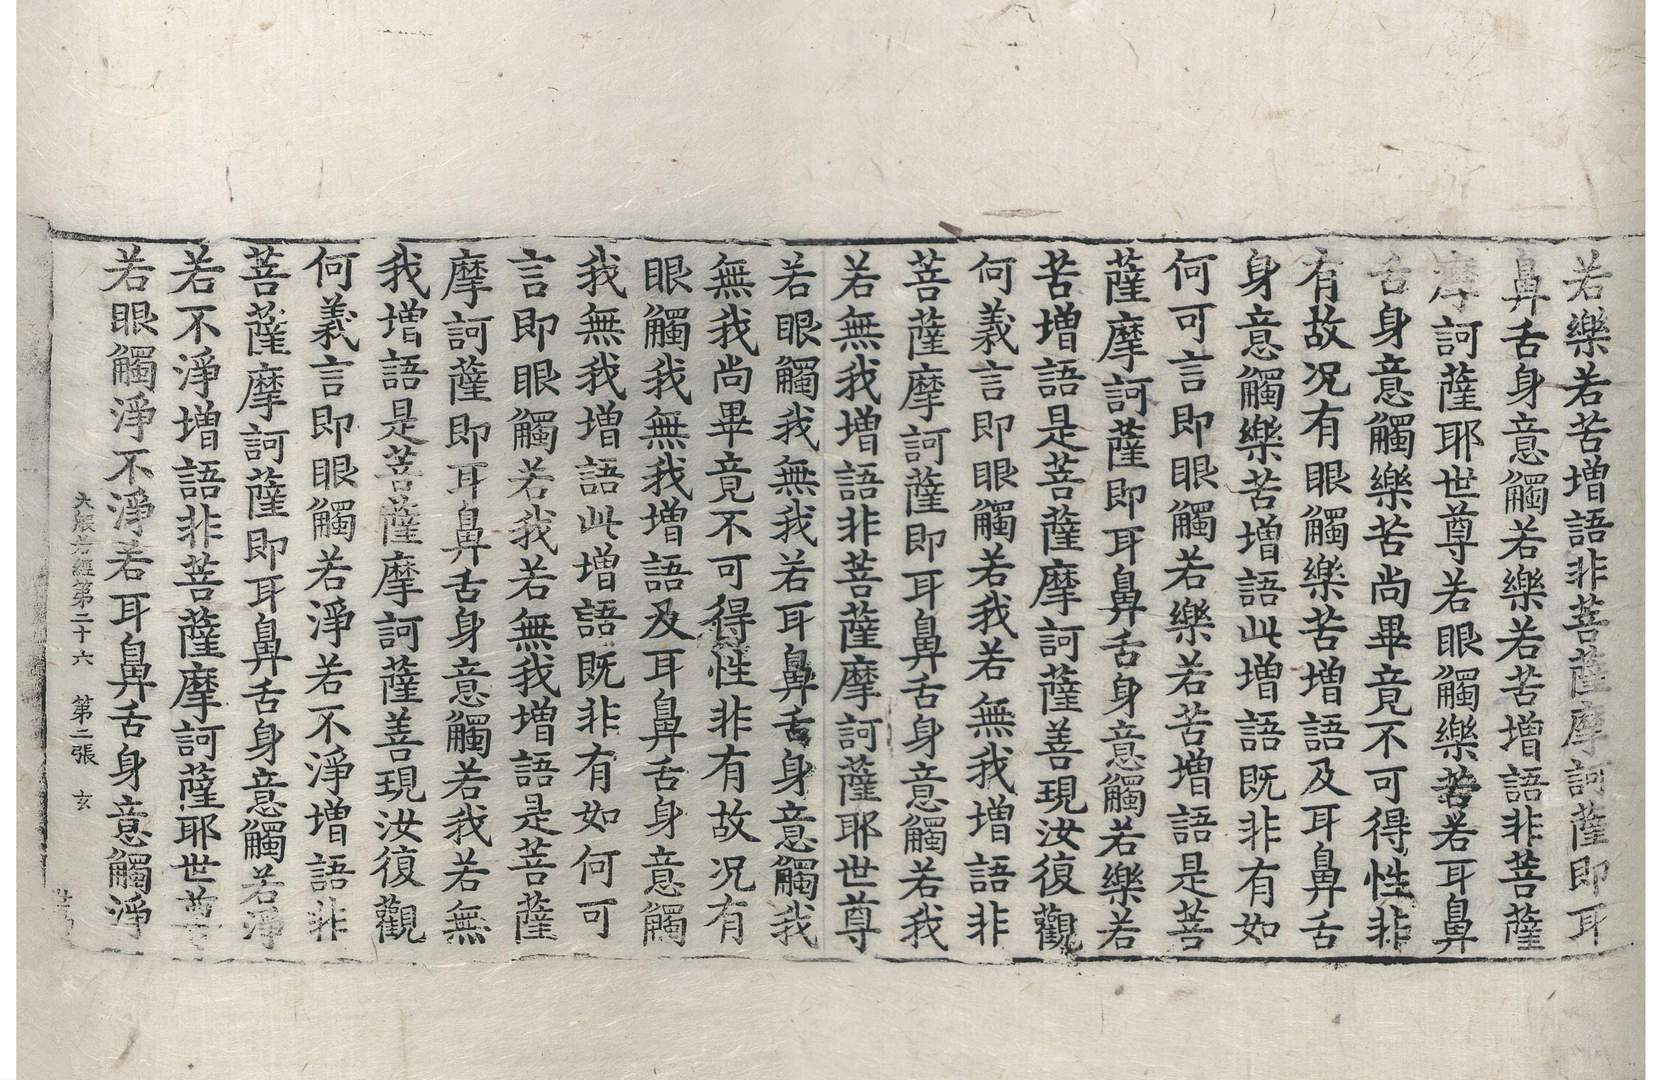 若樂若苦增語非菩薩摩訶薩即耳
鼻舌身意觸若樂若苦增語非菩薩
摩訶薩耶世尊若眼觸樂苦若耳鼻
舌身意觸樂苦尚畢竟不可得性非
有故况有眼觸樂苦增語及耳鼻舌
身意觸樂苦增語此增語既非有如
何可言即眼觸若樂若苦增語是菩
薩摩訶薩即耳鼻舌身意觸若樂若
苦增語是菩薩摩訶薩善現汝復觀
何義言即眼觸若我若無我增語非
菩薩摩訶薩即耳鼻舌身意觸若我
若無我增語非菩薩摩訶薩耶世尊
若眼觸我無我若耳鼻舌身意觸我
無我尚畢竟不可得性非有故况有
眼觸我無我增語及耳鼻舌身意觸
我無我增語此增語既非有如何可
言即眼觸若我若無我增語是菩薩
摩訶薩即耳鼻舌身意觸若我若無
我增語是菩薩摩訶薩善現汝復觀
何義言即眼觸若淨若不淨增語非
菩薩摩訶薩即耳鼻舌身意觸若淨
若不淨增語非菩薩摩訶薩耶世尊
若眼觸淨不淨若耳鼻舌身意觸淨
大般若經第二十六 第二張 玄